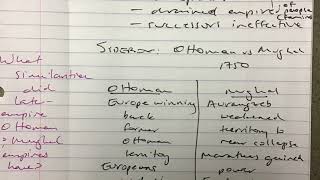 - drained empire of people
- successors ineffective
SIDEBAR: Ottoman vs Mughal
1750
What similarities did late-empire Ottoman + Mughal empires have?
Ottoman
Europe winning
back
former
Ottoman
territory
Europeans
Mughal
Aurangzeb
weakened
territory to
near collapse
marathas gained
power